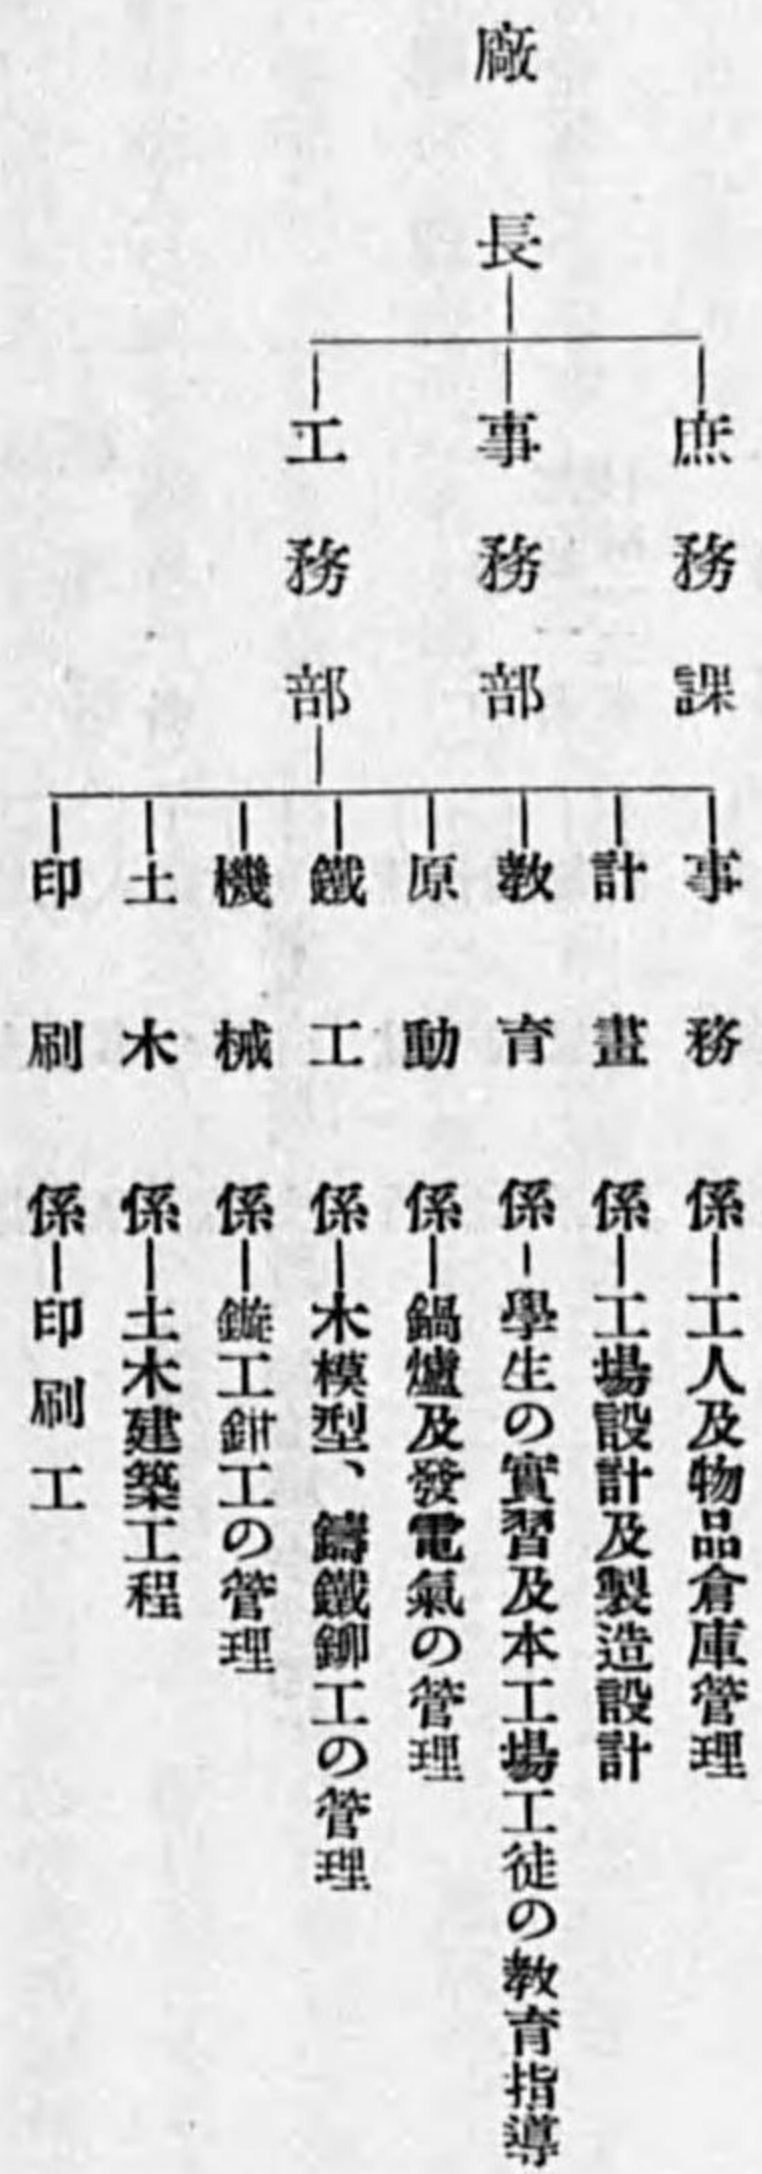 廠長
庶務課
事務部
工務部
事務係―工人及物品倉庫管理
計畫係―工場設計及製造設計
教育係―學生の實習及本工場工徒の教育指導
原動係―鍋爐及發電氣の管理
鐵工係―木模型、鑄鐵鉚工の管理
機械係―鏇工鉗工の管理
土木係―土木建築工程
印刷係―印刷工